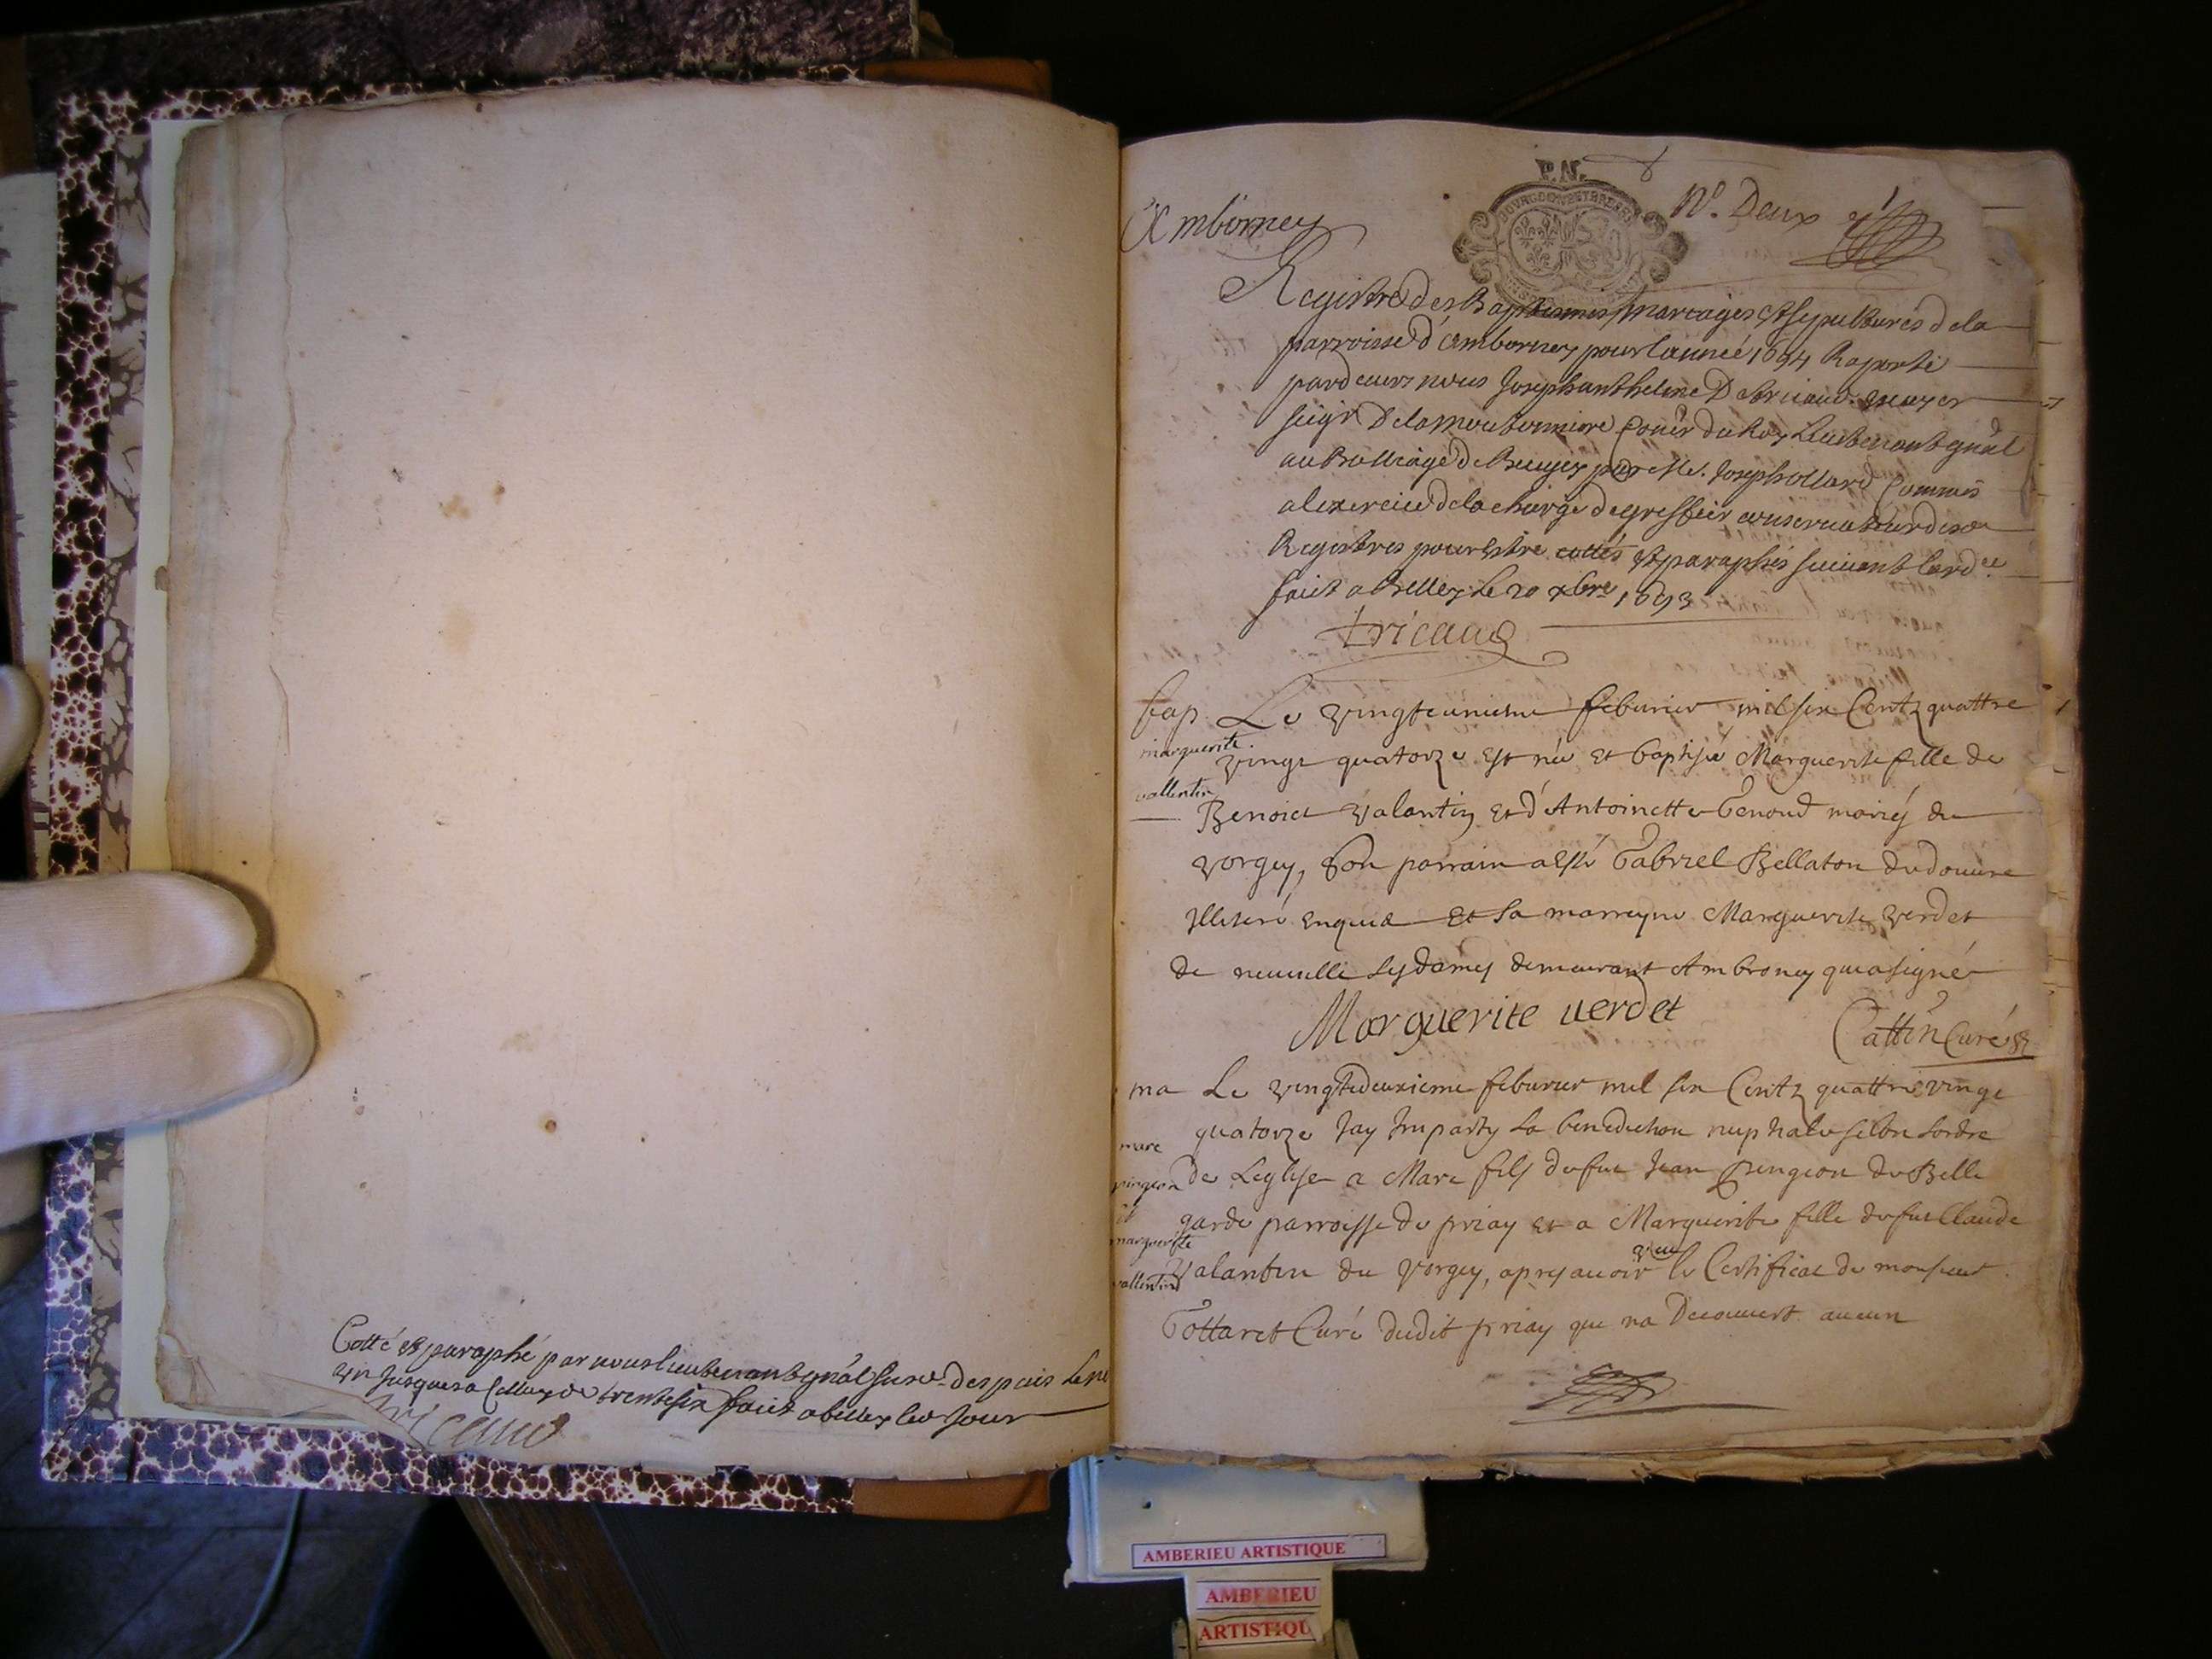 Cotté et paraphé par nous lieutenant gnãl susd. despuis le
un jusques a celluy de trente six fait a belley led jour
Tricaud
Ambörney
P.N.
BOURGOGNE ET BRESSE
N°. Deux
Registre des Baptesmes mariages et sepultures de la
parroisse d'amborney pour l'année 1694 Raporté
pardevers nous Joseph anthelme De tricaud. escuyer
seigr De la Consr du Roy Lieutenant gnãl
au Balliage de Beugey par Me. Joseph ollard Commis
a l'exercice de la charge de greffier conservateur des
Registres pour Estre cottés et paraphés suivant lordce
faict a Belley le 20 xbre 1693
tricaud
bap. Le vingteunieme feburier mil six Centz quattre
marguerite.
vingt quatorze est née et baptisée Marguerite fille de
vallentin
Benoict Valantin et d'Antoinette Genoud mariés du
Vorgey, son parrain a esté Gabriel Bellaton du douure
Illiteré enquis et sa marreyne Marguerite Verdet
de neuuille les dames demeurant Ambroney qui a signé
Marguerite uerdet
Cattin Curé
ma Le vingtedeuxieme feburier mil six Centz quattre vingt
quatorze Jay Imparty la benediction nuptiale selon lordre
marc
pingeon de Leglise a Marc fils de fut Jean Pingeon de Belle
et
garde parroisse de priay et a Marguerite fille de fut Claude
marguerite
vallentin Valantin du Vorgey, apres auoir veu le Certificat de monsieur
Gottaret Curé dudit priay qui na Decouuert aucun
AMBERIEU ARTISTIQUE
AMBERIEU
ARTISTIQU